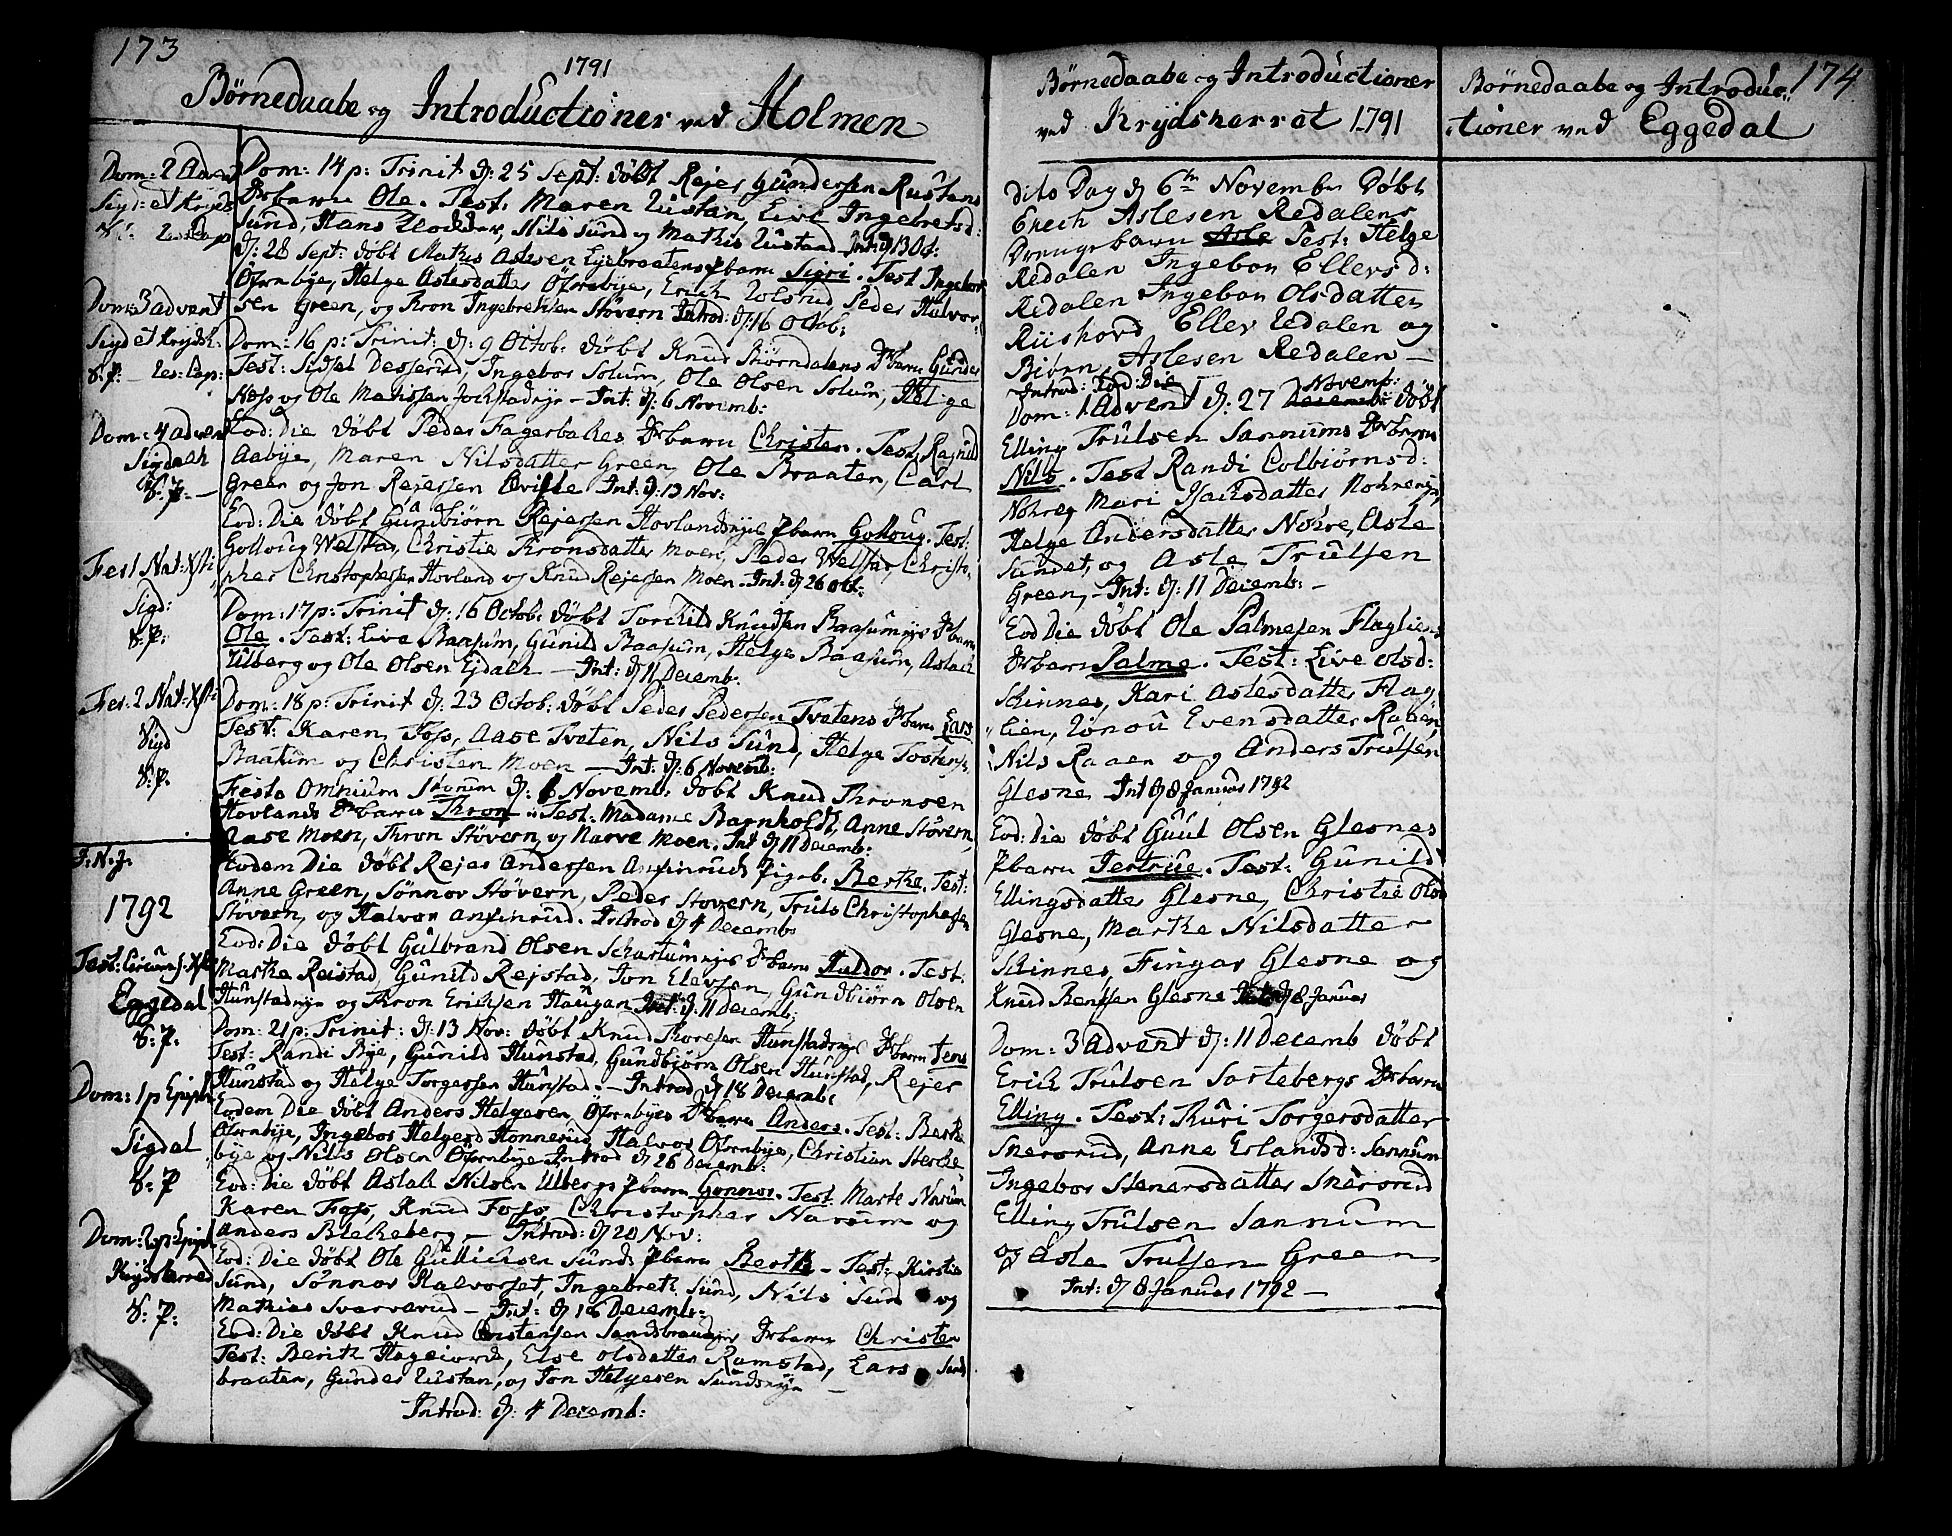 173
1791
Børnedaabe og Introductioner ved Holmen
Dom: 2 Advent
Sigd: et Kryds
S: P:
Dom: 3 advent
Sigd et Krydsh:
S: P: Les: Cap:
Dom: 4 advent
Sigdalh
S: P: —
Fest Nat: Xsti
Sigd:
S: P:
Fer: 2 Nat: Xsti
Sigd
S: P:
J: N: J:
1792
Fest: Circumc: Xsti
Eggedal
S: P.
Dom: 1 p Epiph:
Sigdal
S: P
Dom: 2 p Epiph
Krydsherred
S: P:
Dom: 14 p: Trinit d: 25 Sept: døbt Rejer Gundersen Rustans
Drbarn Ole. Test: Maren Rustan, Live Ingebretsd:
Sund, Hans Nils Sund og Mathis Rustand Int: d 13 Oct:
d: 28 Sept: døbt Mathis Aslesen Eyebraatens Pbarn Sigri. Test Ingebor
Øfernbye, Helge Aslesdatter Øfernbye, Erich Peder Halvor-
sen Green, og Thron Ingebretsen Støvern Introd: d: 16 Octob:
Dom: 16 p: Trinit: d: 9 Octob: døbt Knud Biørndalens Drbarn Gunder
Test: Sidsel Desserud, Ingebor Solum, Ole Olsen Solum, Helge
Ness og Ole Mathissen — Int: d: 6 Novemb:
Eod: Die døbt Peder Fagerbakes Drbarn Christen. Test Ragnild
Aabye, Maren Nilsdatter Green, Ole Braaten, Carl
Green og Jon Rejersen Int: d: 13 Nov:
Eod: Die døbt Gundbiørn Rejersen Hovlandsnye Pbarn Gollaug. Test:
Gollaug Welstad, Christie Thronsdatter Moen, Peder Welstad, Christo-
pher Christophersen Hovland og Knud Rejersen Moen. Int: d 26 Oct:
Dom: 17 p: Trinit d: 16 Octob: døbt Torchild Knudsen Baasumnye Drbarn
Ole. Test: Live Baasum, Gunild Baasum, Helge Baasum, Aslach
Ulberg og Ole Olsen Ejdalh — Int: d 11 Decemb:
Dom: 18 p: Trinit d: 23 Octob: døbt Peder Pedersen Tvetens Drbarn Lars
Test: Karen Foss, Aase Tveten, Nils Sund, Helge Tostens:
Braatum og Christen Moen — Int: d: 6 Novemb:
Festo Omnium Storum d: 6 Novemb: døbt Knud Thronsen
Hovlands Drbarn Thron — Test: Madame Barnholdt, Anne Støvern,
Aase Moen, Thron Støvern, og Narve Moen. Int d 11 Decemb:
Eodem Die døbt Rejer Andersen Anfinruds Pigeb: Berthe. Test:
Anne Green, Sønnov Støvern, Peder Støvern, Truls Christophersen
Støvern, og Halvor Anfinrud. Introd d 4 Decemb
Eod: Die døbt Gulbrand Olsen Schartumnye Drbarn Haldor. Test.
Marthe Rejstad, Gunild Rejstad, Jon Elevsen, Gundbiørn Olsen
Hunstadnye og Thron Erichsen Haugan Int: d: 11 Decemb:
Dom: 21 p: Trinit: d: 13 Nov: døbt Knud Thoresen Hunstadnye Drbarn Jens
Test: Randi Bye, Gunild Hunstad, Gundbiørn Olsen Hunstad, Rejer
Hunstad og Helge Torgersen Hunstad. — Introd d 18 Decemb:
Eodem Die døbt Anders Helgesen Øfernbyes Drbarn Anders. Test: Berthe
Øfernbye, Ingebor Helgesd Honnerud, Halvor Øfernbye, Christian
bye og Nils Olsen Øfernbye Introd d 26 Decemb:
Eod: Die døbt Aslak Nilsen Ulbergs Pbarn Gonnor. Test Marte Narum
Karen Foss, Knud Foss, Christopher Narum og
Anders Blekeberg — Introd: d 20 Nov:
Eod: Die døbt Ole Gullichsen Sunds Pbarn Berthe — Test: Kirstie
Sund, Sønnov Halvorset, Ingebreth Sund, Nils Sund og
Mathias Svarverud — Int: d 18 Decemb:
Eod: Die døbt Knud Christensen Sandsbraatens Drbarn Christen
Test: Berith Hageiorde, Else Olsdatter Ramstad, Lars Sands
braaten, Gunder Rustan, og Jon Helgesen Sundsnye —
Introd: d: 4 Decemb:
Børnedaabe og Introductioner
ved Krydsherret 1791
dito Dag d 6te November døbt
Erich Aslesen Redalens
Drengebarn Asle Test: Helge
Redalen Ingebor Ellersd:
Redalen Ingebor Olsdatter
Riishovd, Eller Redalen og
Biørn Aslesen Redalen —
Introd: Eod: Die
Dom: 1 Advent d: 27 Novemb: døbt
Elling Trulsen Sannums Drbarn
Nils. Test Randi Colbiørnsd:
Nohre, Mari Isachsdatter Nohre
Helge Andersdatter Nohre, Asle
Sundet, og Asle Trulsen
Green, — Int: d: 11 Decemb: —
Eod Die døbt Ole Palmesen Flaglien
Drbarn Palme. Test: Live Olsd:
Skinnes, Kari Aslesdatter Flag
lien, Evensdatter Raaen,
Nils Raaen og Anders Trulsen
Glesne Int d 8 Januar 1792
Eod: Die døbt Guul Olsen Glesnes
Pbarn Jertrue. Test: Gunild
Ellingsdatter Glesne, Christie Olsd
Glesne, Marthe Nilsdatter
Skinnes, Fingar Glesne og
Knud Bentsen Glesne Int d 8 Januar
Dom: 3 Advent d: 11 Decemb døbt
Erich Trulsen Sortebergs Drbarn
Elling. Test: Thuri Torgersdatter
Snersrud, Anne Erlandsd: Sannum
Ingebor Stenersdatter Snersrud
Elling Trulsen Sannum
og Asle Trulsen Green
Int: d 8 Januar 1792 —
Børnedaabe og Introduc-
tioner ved Eggedal
174